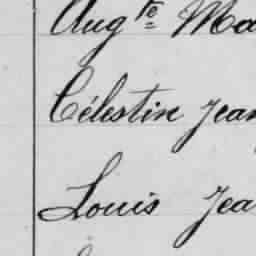 Augte Ma
Célestin Jean
Louis Jea